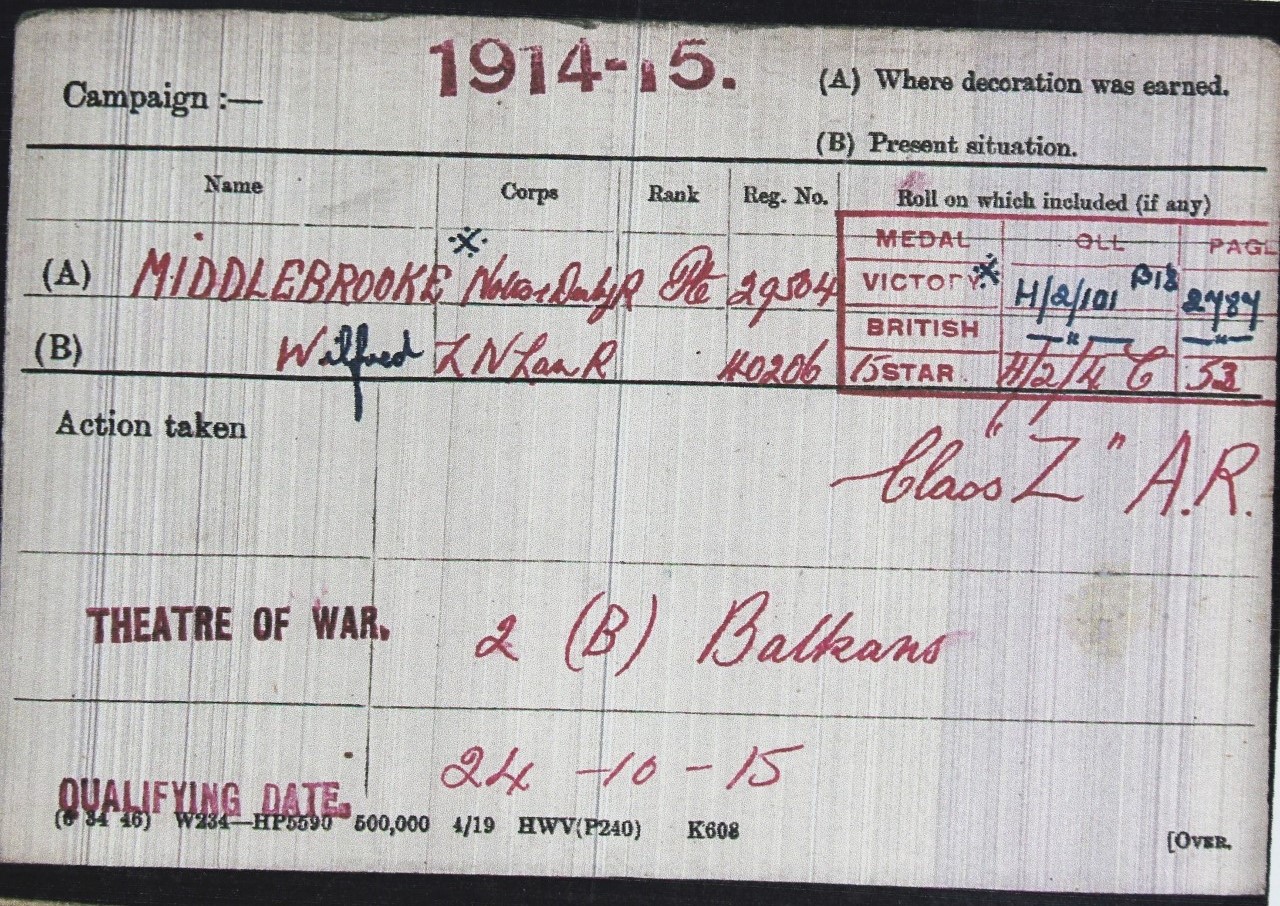 1914-15.
Campaign :—
(A) Where decoration was earned.
(B) Present situation.
Name Corps Rank Reg. No. Roll on which included (if any)
MEDAL OLL PAGE
(A) MIDDLEBROOKE Notts & Derby R Pte 29504 VICTORY H/2/101 B18 2787
BRITISH —"— —"—
(B) Wilfred L N Lan R 40206 15 STAR. H/2/4 C 53
Action taken
Class "Z" A.R.
THEATRE OF WAR. 2 (B) Balkans
QUALIFYING DATE. 24 -10 - 15
(6 34 46) W234—HP5590 500,000 4/19 HWV(P240) K608
[OVER.